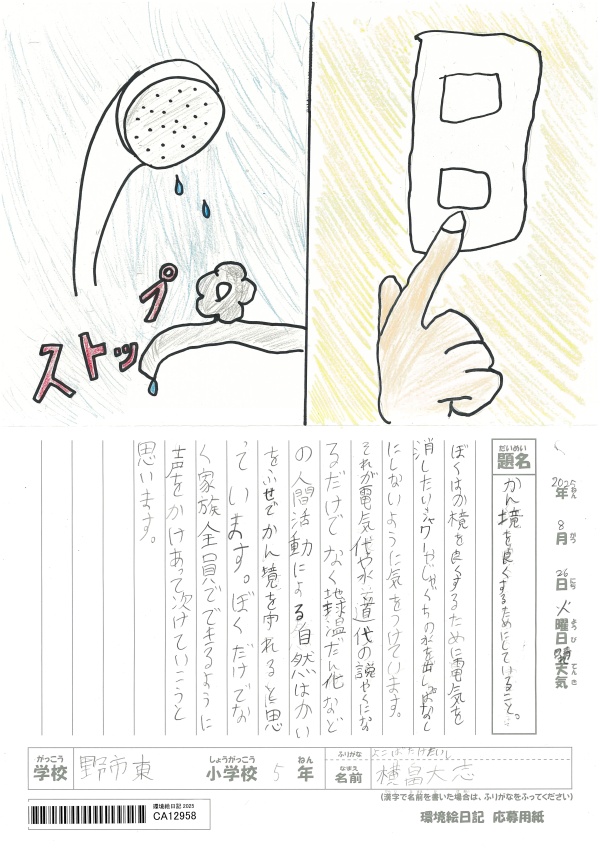 ストップ
2025年 8月 26日 火曜日 晴天気
ねん がつ にち ようび てんき
だいめい
題名
かん境を良くするためにしていること。
ぼくはか境を良くするために電気を
消したいシャワーやじゃぐちの水を出しぱなし
にしないように気をつけています。
それが電気代や水道代の説やくにな
るだけでなく地球温だん化など
の人間活動による自然はかい
をふせでかん境を守れると思
っています。ぼくだけでな
く家族全員でできるように
声をかけあって次けていこうと
思います。
がっこう しょうがっこう ねん
学校 野市東 小学校 5年
ふりがな よこばたけたいし
なまえ
名前 横畠大志
(漢字で名前を書いた場合は、ふりがなをふってください)
環境絵日記2025
CA12958
環境絵日記 応募用紙